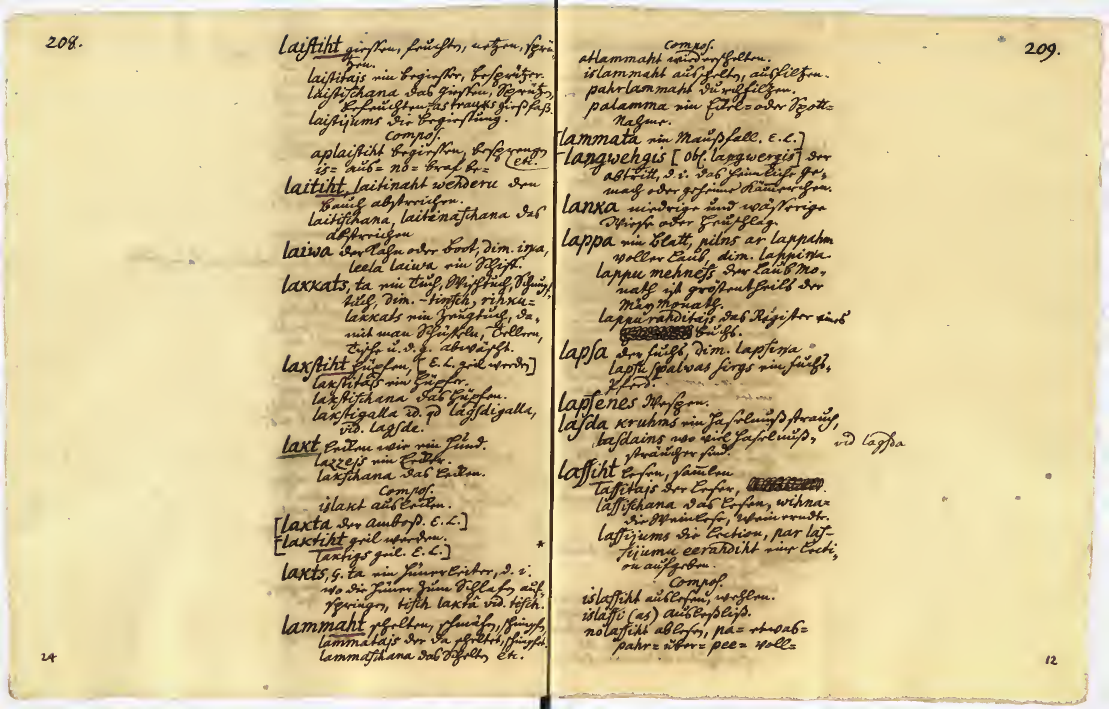 208.
laistiht giessen, feuchten, netzen, sprü-
tzen.
laistitajs ein begiesser, besprützer.
laistischana das giessen, Sprützen,
befeuchten, as trauks giessfass.
laistijums die begiessung.
Compos.
aplaistiht begiessen, besprengen
is= aus= no= be= etc.
laitiht, laitinaht wehderu den
bauch abstreichen.
laitischana, laitinaschana das
abstreichen
laiwa der Kahn oder boot, dim. iņa,
leela laiwa ein Schiff.
lakkats, ta ein Tuch, Wischtuch, Schnupf
tuch, dim. -tinsch, rihku=
lakkats ein Zeugtuch, da,
mit man Schüsseln, Tellern,
Tische u. d. g. abwäscht.
lakstiht hüpfen, [E.L. geil werden]
lakstitajs ein hüpfer.
lakstischana das hüpfen.
lakstigalla id. qd lagsdigalla,
vid. lagsde.
lakt lecken wie ein Hund.
lakschana das lecken.
Compos.
islakt auslecken.
[lakta der Amboss. E.L.]
[laktiht geil werden.
laktigs geil. E.L.]
lakts, g. ta ein Hünerleiter, d. i.
wo die Hüner zum Schlafen auf,
springen, tisch lakta vid. tisch.
lammaht schelten, schmähen, schimpfen
lammatajs der da scheltet, schimpfet.
lammaschana das Schelten etc.
24
*
209.
Compos.
atlammaht wiederschelten.
islammaht ausschelten, ausfilzen.
pahrlammaht durchfilzen.
palamma ein Eckel= oder Spott=
Nahme.
[lammata ein Maussfall. E.L.]
langwehgis [Obs. langwergis] der
abtritt, d. i. das heimliche ge,
mach oder geheime Kämmerchen.
lanka niedrige und wässerige
Wiese oder Heuschlag.
lappa ein Blatt, pilns ar lappahm
voller Laub, dim. lappiņa.
lappu mehness der Laub Mo,
nath ist gröstentheils der
May Monath.
lappu rahditajs das Register eines
buchs.
lapsa der fuchs, dim. lapsiņa
lapsu spalwas sirgs ein fuchs,
Pferd.
lapsenes Wespen.
lasda kruhms ein Haselnuss strauch,
lasdains wo viel Haselnuss, vid lagsda
sträucher sind.
lassiht lesen, samlen
lassitajs der Leser,
lassischana das Lesen, wihna=
die Weinlese, Weinerndte.
lassijums die Lection, par las=
sijumu eerahdiht eine Lecti,
on aufgeben.
Compos.
islassiht auslesen, wehlen.
islassi (as)
nolassiht ablesen, pa= etwas=
pahr= über= pee= voll=
12